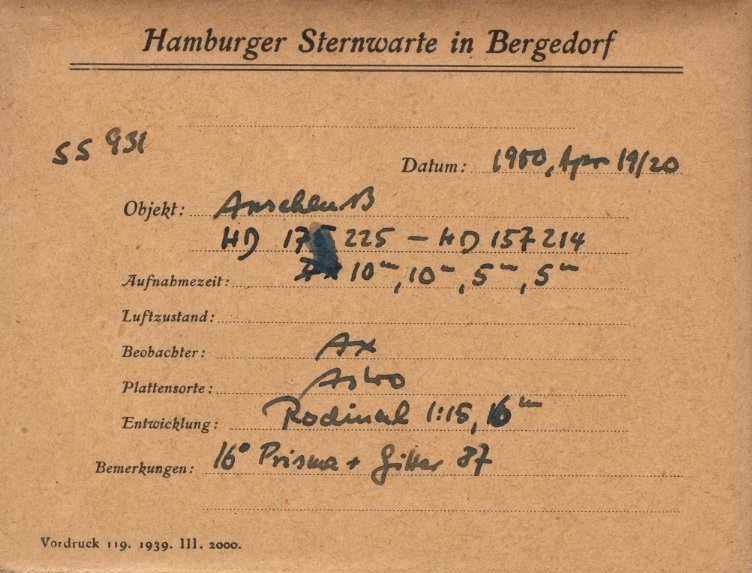 Hamburger Sternwarte in Bergedorf
SS 931
Datum: 1950, Apr 19/20
Objekt: Anschluß
HD 175225 – HD 157214
Aufnahmezeit: 10ᵐ, 10ᵐ, 5ᵐ, 5ᵐ
Luftzustand:
Beobachter: Ax
Plattensorte: Astro
Entwicklung: Rodinal 1:15, 16ᵐ
Bemerkungen: 16° Prisma + Gitter 87
Vordruck 119. 1939. III. 2000.